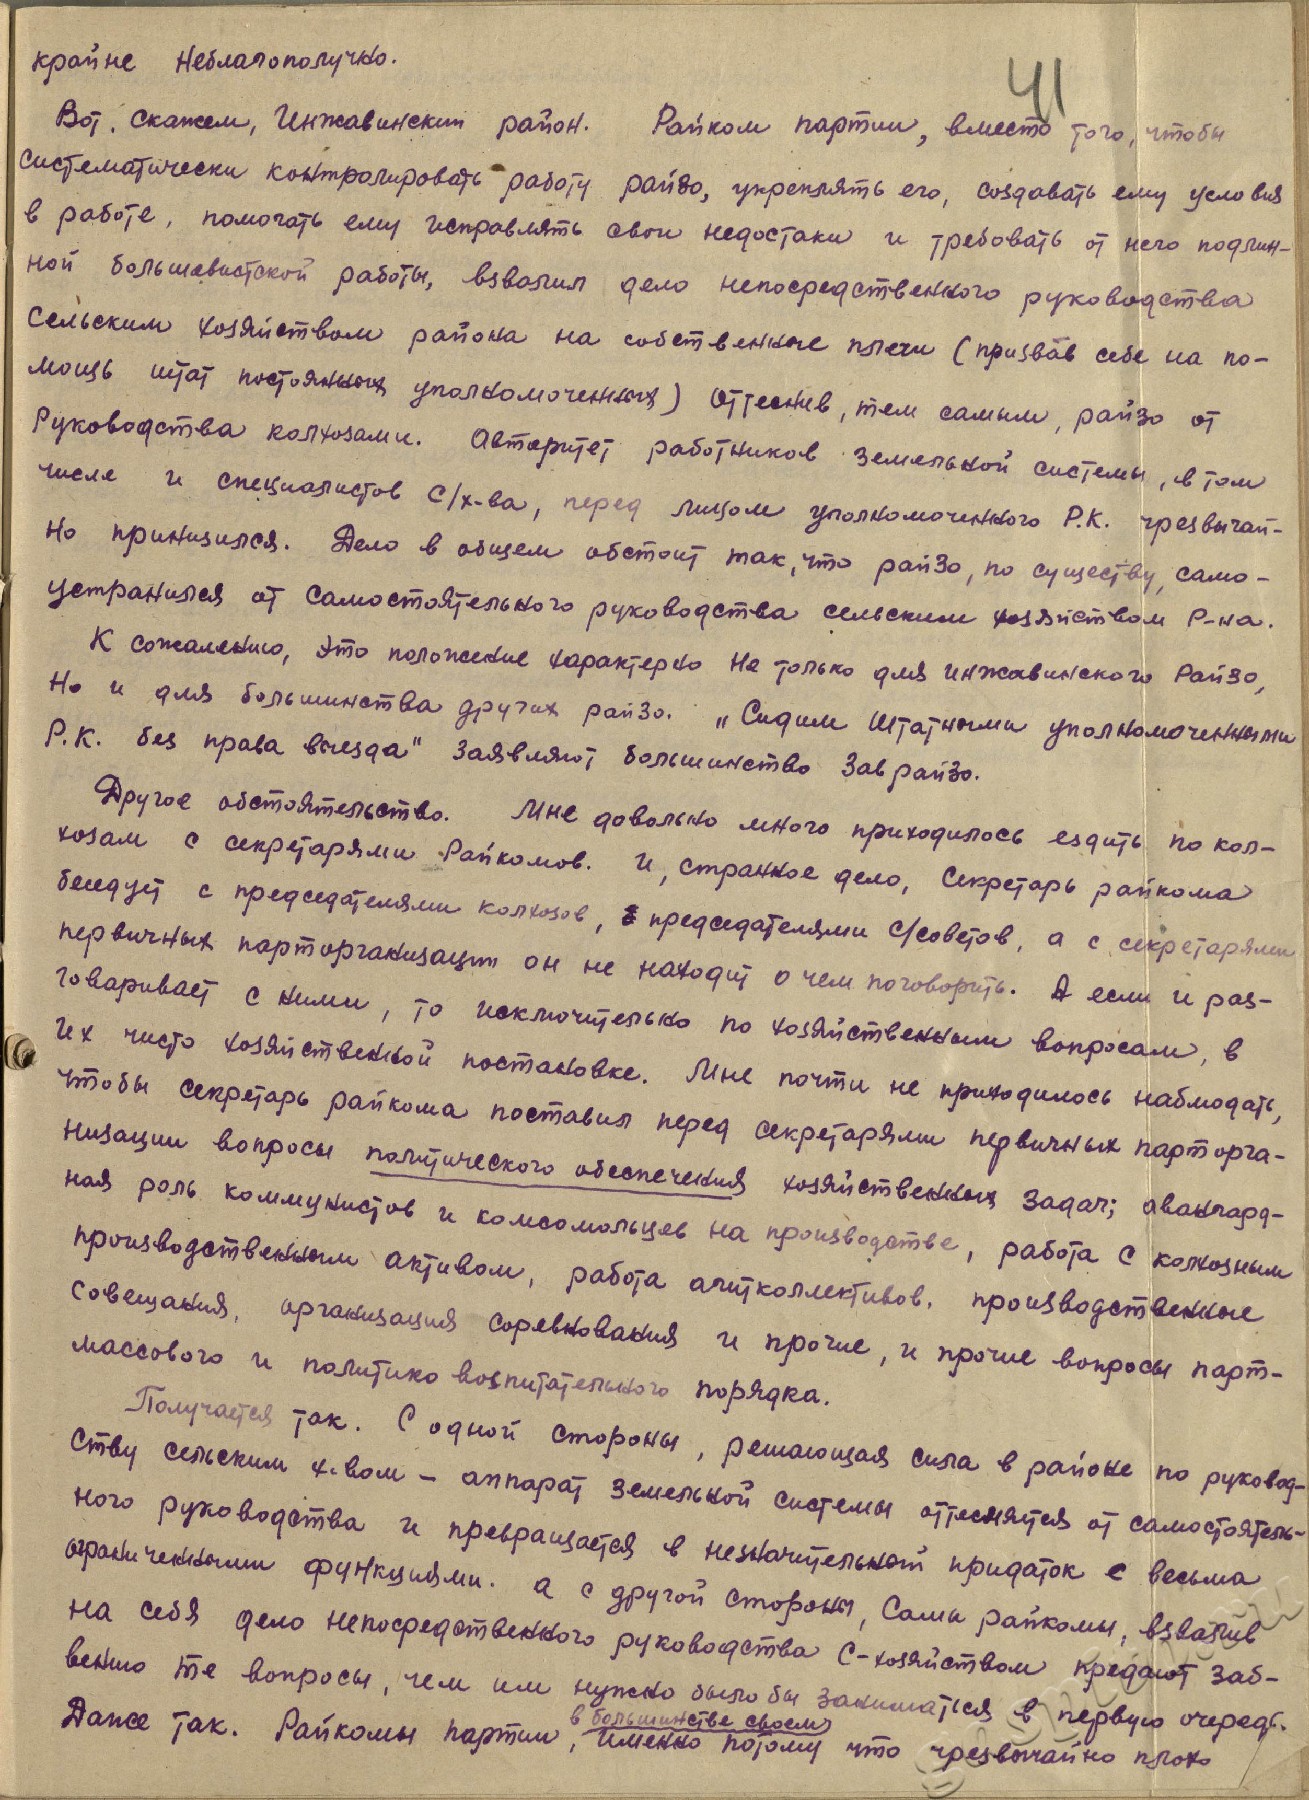 41
крайне неблагополучно.
Вот, скажем, Инжавинский район. Райком партии, вместо того, чтобы
систематически контролировать работу райзо, укреплять его, создавать ему условия
в работе, помогать ему исправлять свои недостаки и требовать от него подлин-
ной большевистской работы, взвалил дело непосредственного руководства
сельским хозяйством района на собственные плечи (призвав себе на по-
мощь штат постоянных уполномоченных) оттеснив, тем самым, райзо от
руководства колхозами. Авторитет работников земельной системы, в том
числе и специалистов с/х-ва, перед лицом уполномоченного Р.К. чрезвычай-
но принизился. Дело в общем обстоит так, что райзо, по существу, само-
устранился от самостоятельного руководства сельским хозяйством р-на.
К сожалению, это положение характерно не только для Инжавинского Райзо,
но и для большинства других райзо. „Сидим штатными уполномоченными
Р.К. без права выезда" заявляют большинство Зав райзо.
Другое обстоятельство. Мне довольно много приходилось ездить по кол-
хозам с секретарями Райкомов. И, странное дело, секретарь райкома
беседует с председателями колхозов, с председателями с/советов, а с секретарями
первичных парторганизации он не находит о чем поговорить. А если и раз-
говаривает с ними, то исключительно по хозяйственным вопросам, в
их чисто хозяйственной постановке. Мне почти не приходилось наблюдать,
чтобы секретарь райкома поставил перед секретарями первичных парторга-
низации вопросы политического обеспечения хозяйственных задач; авангард-
ная роль коммунистов и комсомольцев на производстве, работа с колхозным
производственным активом, работа агитколлективов, производственные
совещания, организация соревнования и прочие, и прочие вопросы парт-
массового и политико воспитательного порядка.
Получается так. С одной стороны, решающая сила в районе по руковод-
ству сельским х-вом – аппарат земельной системы оттеснятся от самостоятель-
ного руководства и превращается в незначительный придаток с весьма
ограниченными функциями. а с другой стороны, сами райкомы, взвалив
на себя дело непосредственного руководства с-хозяйством предают заб-
вению те вопросы, чем им нужно было бы заниматься в первую очередь.
Далее так. Райкомы партии, в большинстве своем, именно потому что чрезвычайно плохо